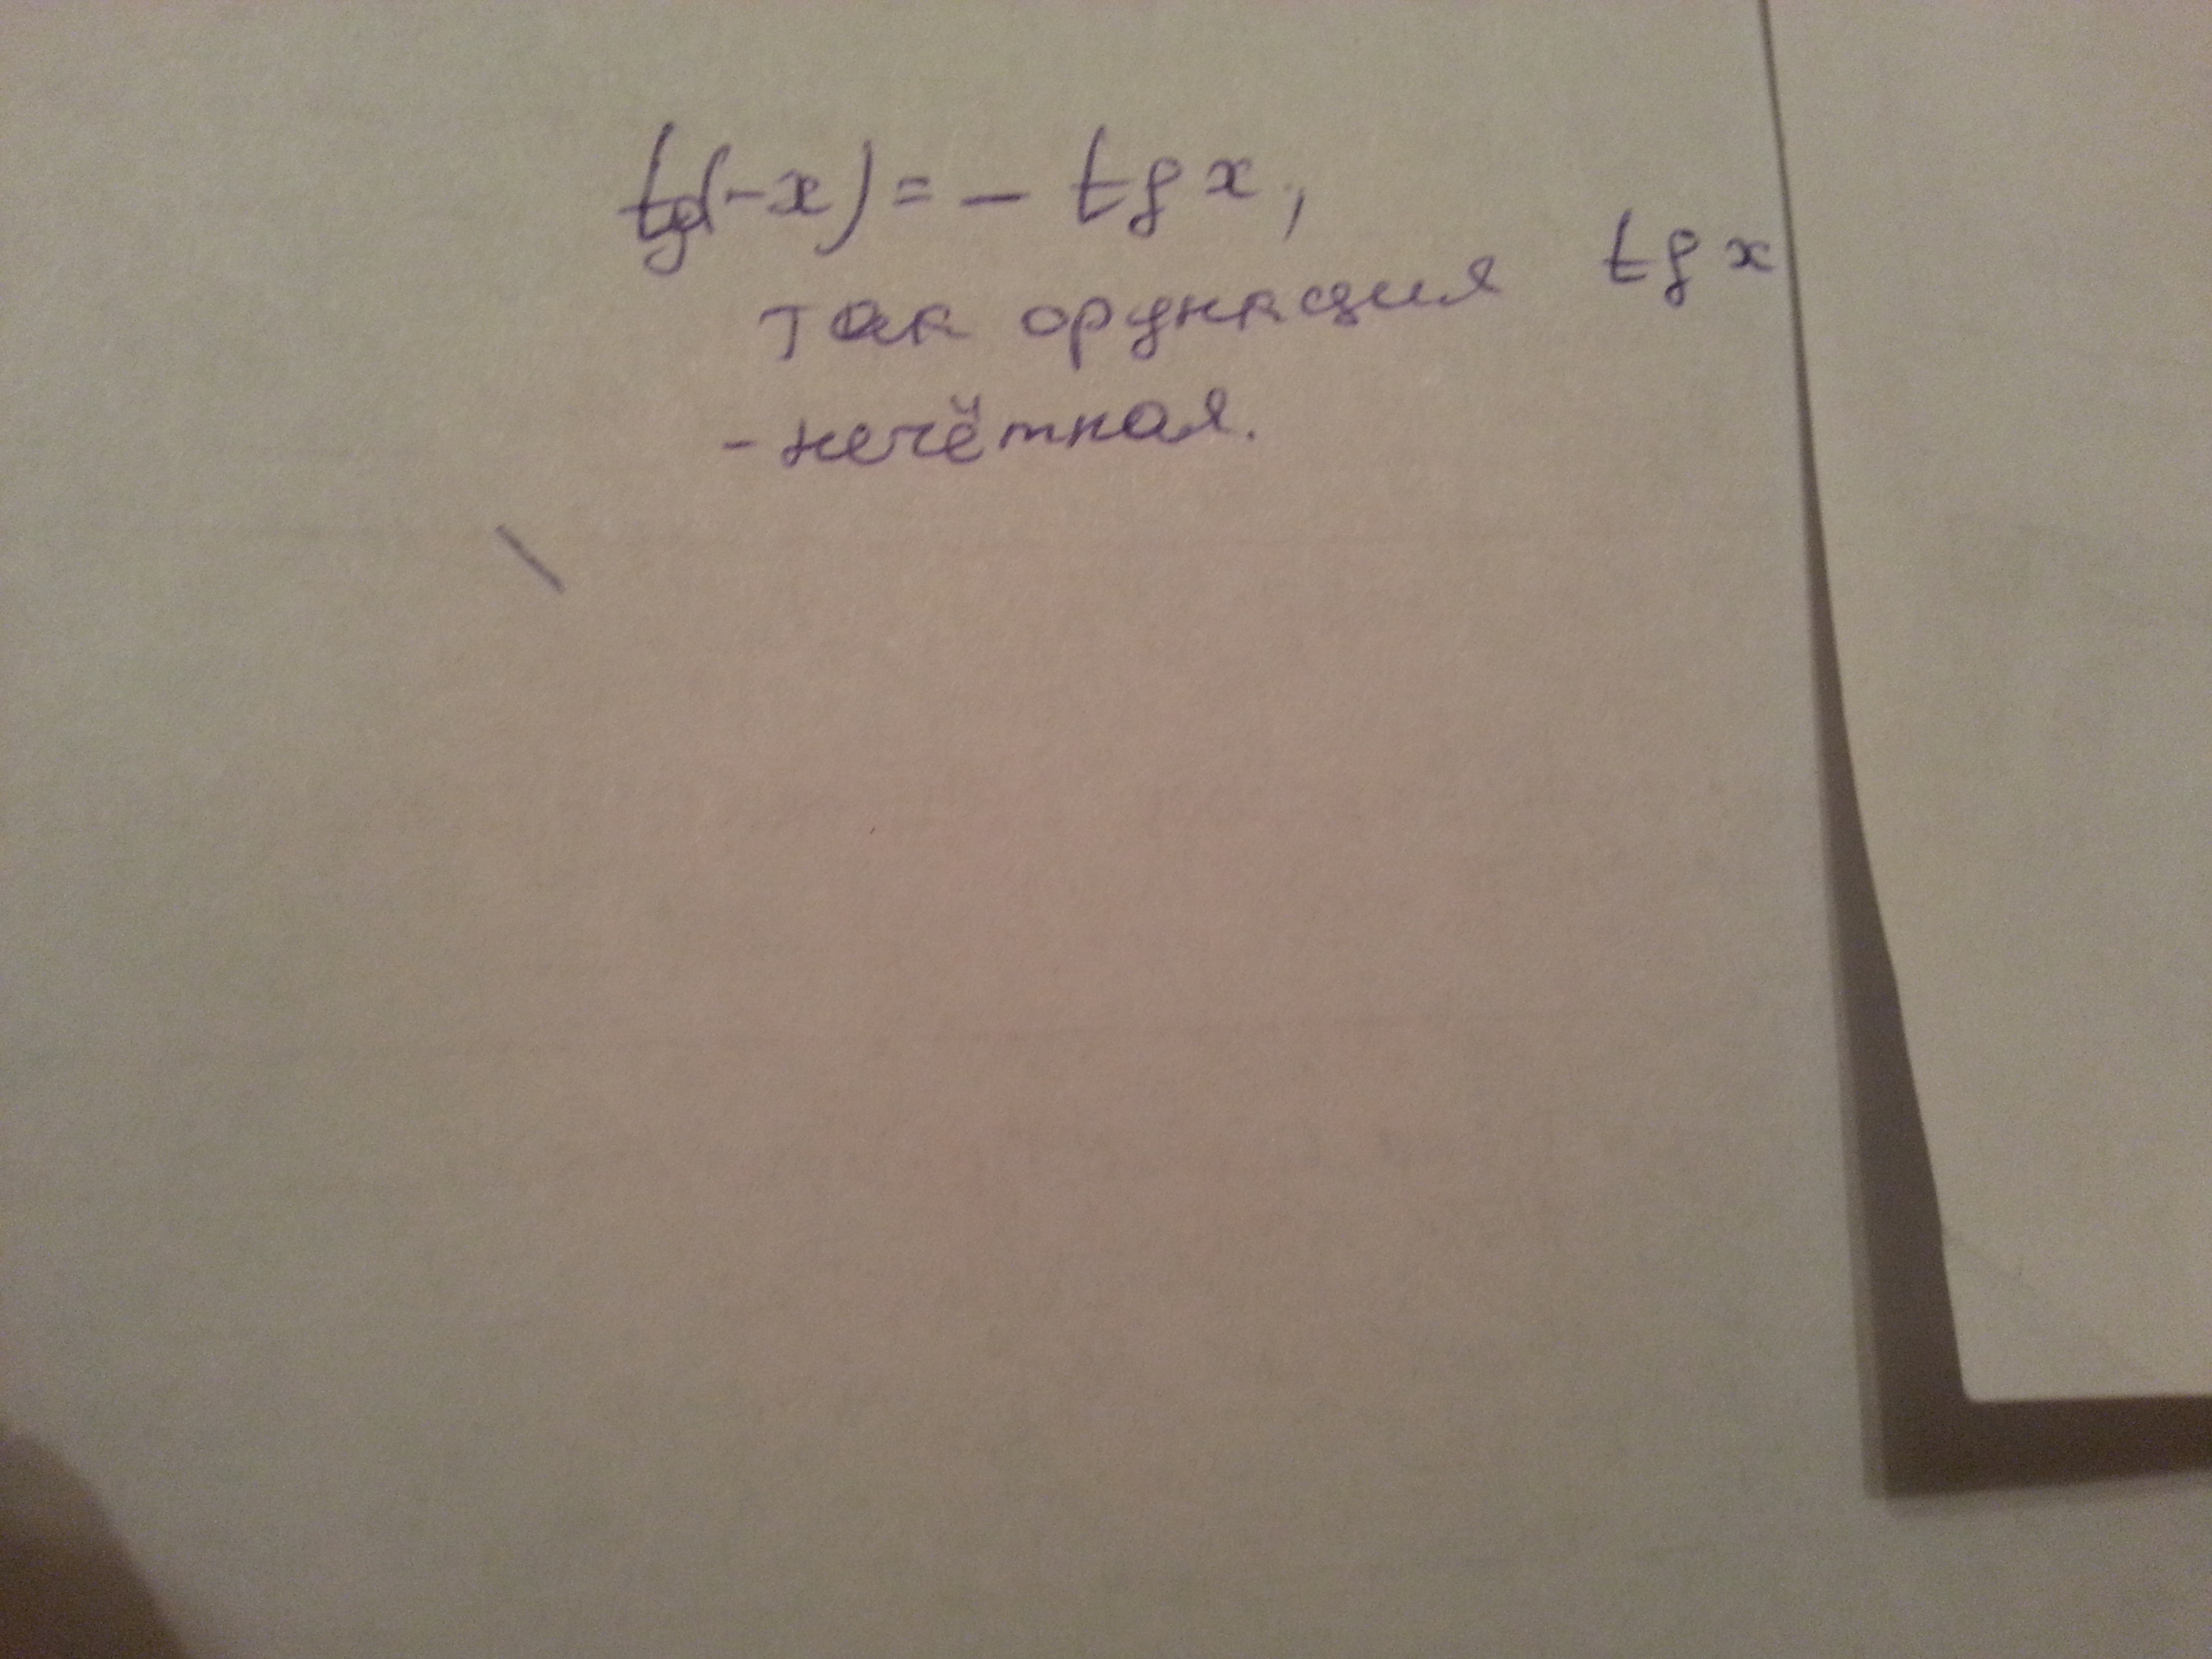 tg(-x) = - tg x,
так функция tg x
- нечётная.